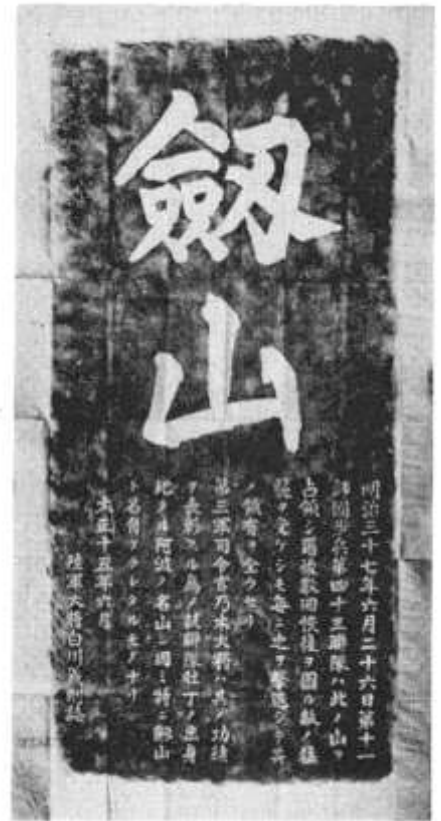 劒山
明治三十七年六月二十六日第十一
師團歩兵第四十三聯隊ハ此ノ山ヲ
占領シ爾後數囘恢復ヲ圖ル敵ノ猛
襲ヲ受ケシモ每ニ之ヲ擊退シテ其
ノ領有ヲ全ウセリ
第三軍司令官乃木大將ハ其ノ功績
ヲ表彰スル爲メ該聯隊壯丁ノ出身
地タル阿波ノ名山ニ因ミ特ニ劒山
ト名ラレタルモノナリ
大正十五年六月
陸軍大將白川義則誌